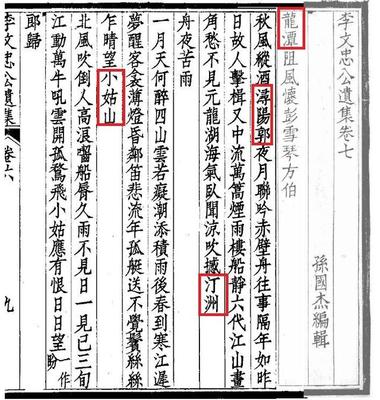 李文忠公遺集卷七
孫國杰編輯
龍潭阻風懷彭雪琴方伯
秋風縱酒潯陽郭夜月聯吟赤壁舟往事隔年如昨
日故人擊楫又中流萬篙煙雨樓船靜六代江山畫
角愁不見元龍湖海氣臥聞涼吹撼汀洲
舟夜苦雨
一月天何醉四山雲若癡潮添積雨後春到寒江遲
夢醒客衾薄燈昏鄰笛悲流年孤艇送不覺鬢絲絲
乍晴望小姑山
北風吹倒人高浪齧船脣久雨不見日一見已三旬
江動萬牛吼雲開孤鶩飛小姑應有恨日日望一作盼
郎歸
李文忠公遺集 卷六 九